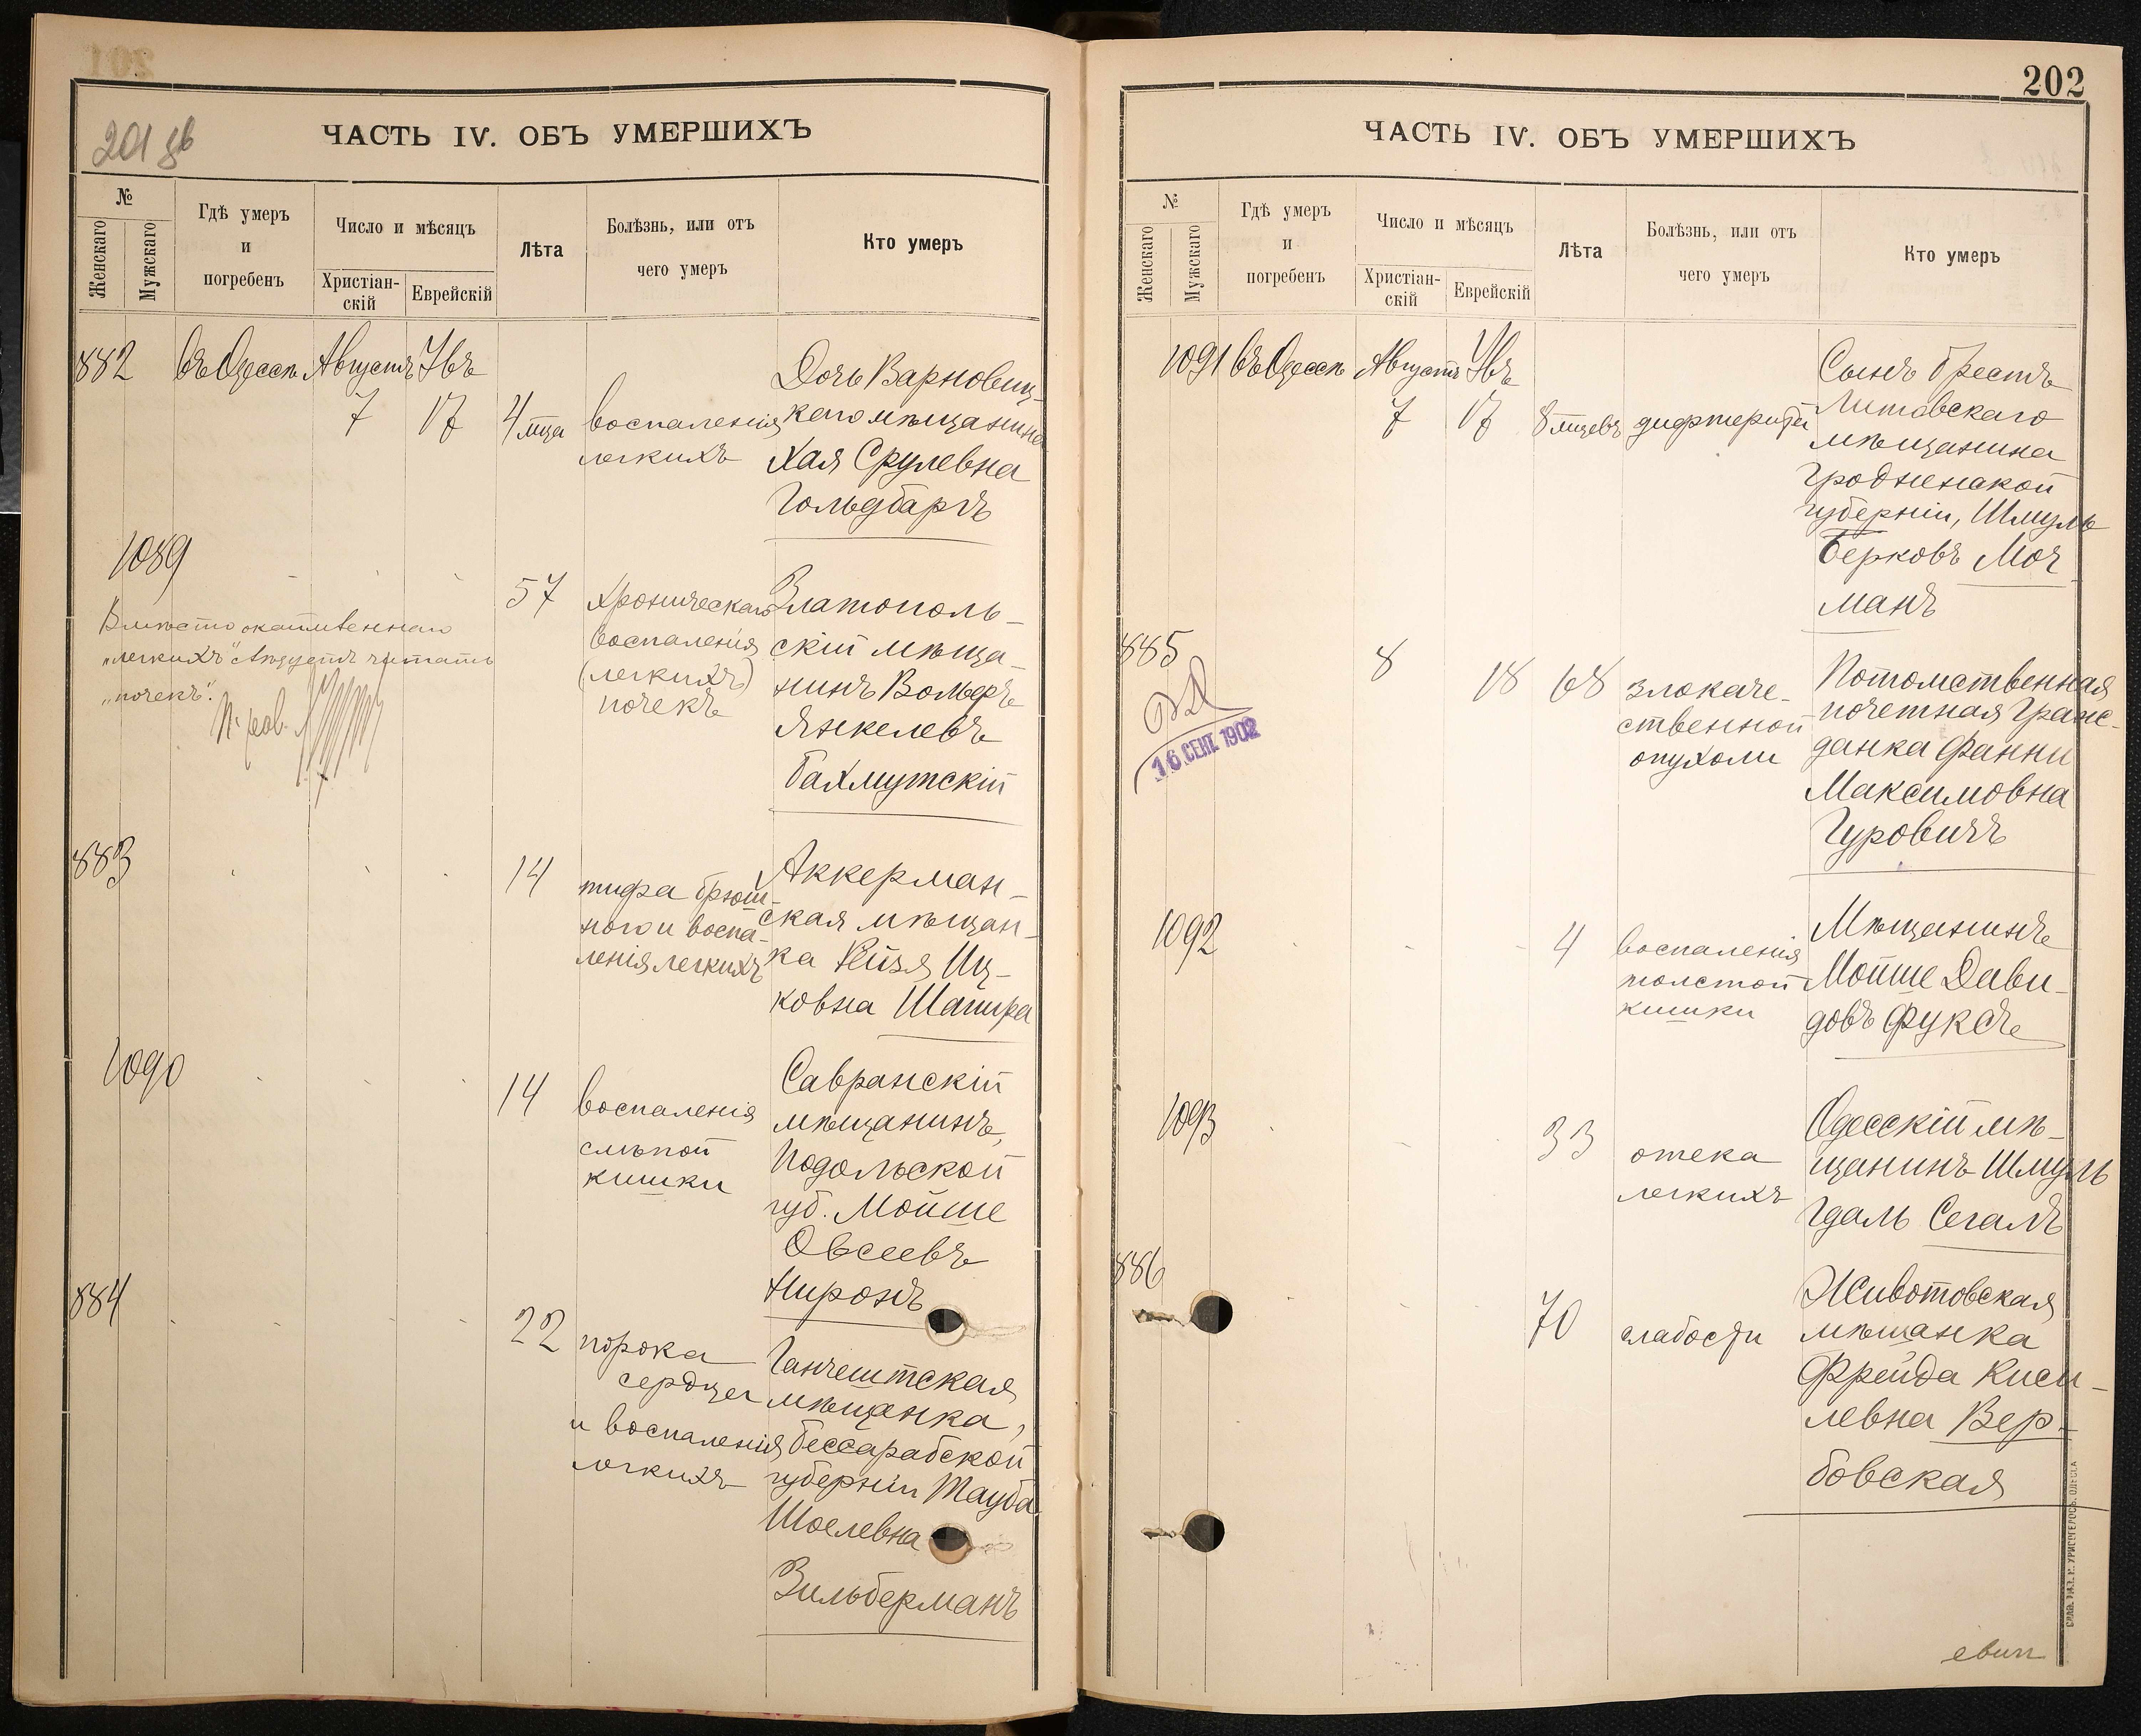 201 зв
ЧАСТЬ IV. ОБЪ УМЕРШИХЪ
№
Женскаго
Мужскаго
Гдѣ умеръ
и
погребенъ
Число и мѣсяцъ
Христіан-
скій
Еврейскій
Лѣта
Болѣзнь, или отъ
чего умеръ
Кто умеръ
882 въ Одессѣ Августъ Увъ
7 17 4 мца воспаленія
легкихъ
Дочь Варновиц-
каго мѣщанина
Хая Срулевна
Гольдбаргъ
1089
57 Хроническаго
воспаленія
(легкихъ)
почекъ
Златополь-
скій мѣща-
нинъ Вольфъ
Янкелевъ
Бахмутскій
Вмѣсто
"легкихъ" слѣдуетъ читать
"почекъ".
883
14 тифа брюш-
ного и воспа-
ленія легкихъ
Аккерман-
ская мѣщан-
ка Рейзя Иц-
ковна Шапира
1090
14 воспаленія
слѣпой
кишки
Савранскій
мѣщанинъ,
Подольской
губ. Мойше
Овсеевъ
Ниронъ
884
22 порока
сердца
и воспаленія
легкихъ
Ганчештская
мѣщанка,
Бессарабской
губерніи Тауба
Шоелевна
Зильберманъ
202
ЧАСТЬ IV. ОБЪ УМЕРШИХЪ
№
Женскаго
Мужскаго
Гдѣ умеръ
и
погребенъ
Число и мѣсяцъ
Христіан-
скій
Еврейскій
Лѣта
Болѣзнь, или отъ
чего умеръ
Кто умеръ
1091 въ Одессѣ Августъ Увъ
7 17 8 мцевъ дифтерита
Сынъ Брестъ
Литовскаго
мѣщанина
Гродненской
губерніи, Шмуль
Берковъ Моч
манъ
885
16 СЕНТ. 1902
8 18 68 злокаче-
ственной
опухоли
Потомственная
почетная Граж-
данка Фанни
Максимовна
Гуровичъ
1092
4 воспаленія
толстой
кишки
Мѣщанинъ
Мойше Дави-
довъ Фуксъ
1093
33 отека
легкихъ
Одесскій мѣ-
щанинъ Шмуль
Гдаль Сегалъ
886
70 слабости
Животовская
мѣщанка
Фрейда Киси-
левна Вер-
бовская